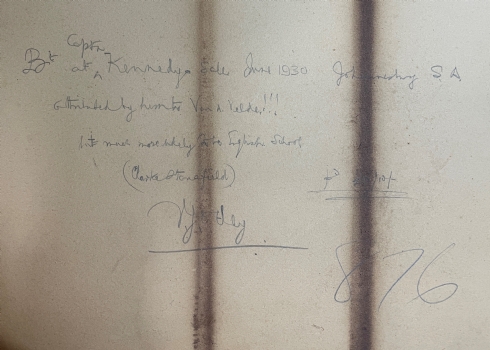 Bt at Captn Kennedys Sale June 1930 Johannesburg S A
attributed by him to Van d. Velde!!!
but much more likely to be English School
(Clarke Stansfield)
876